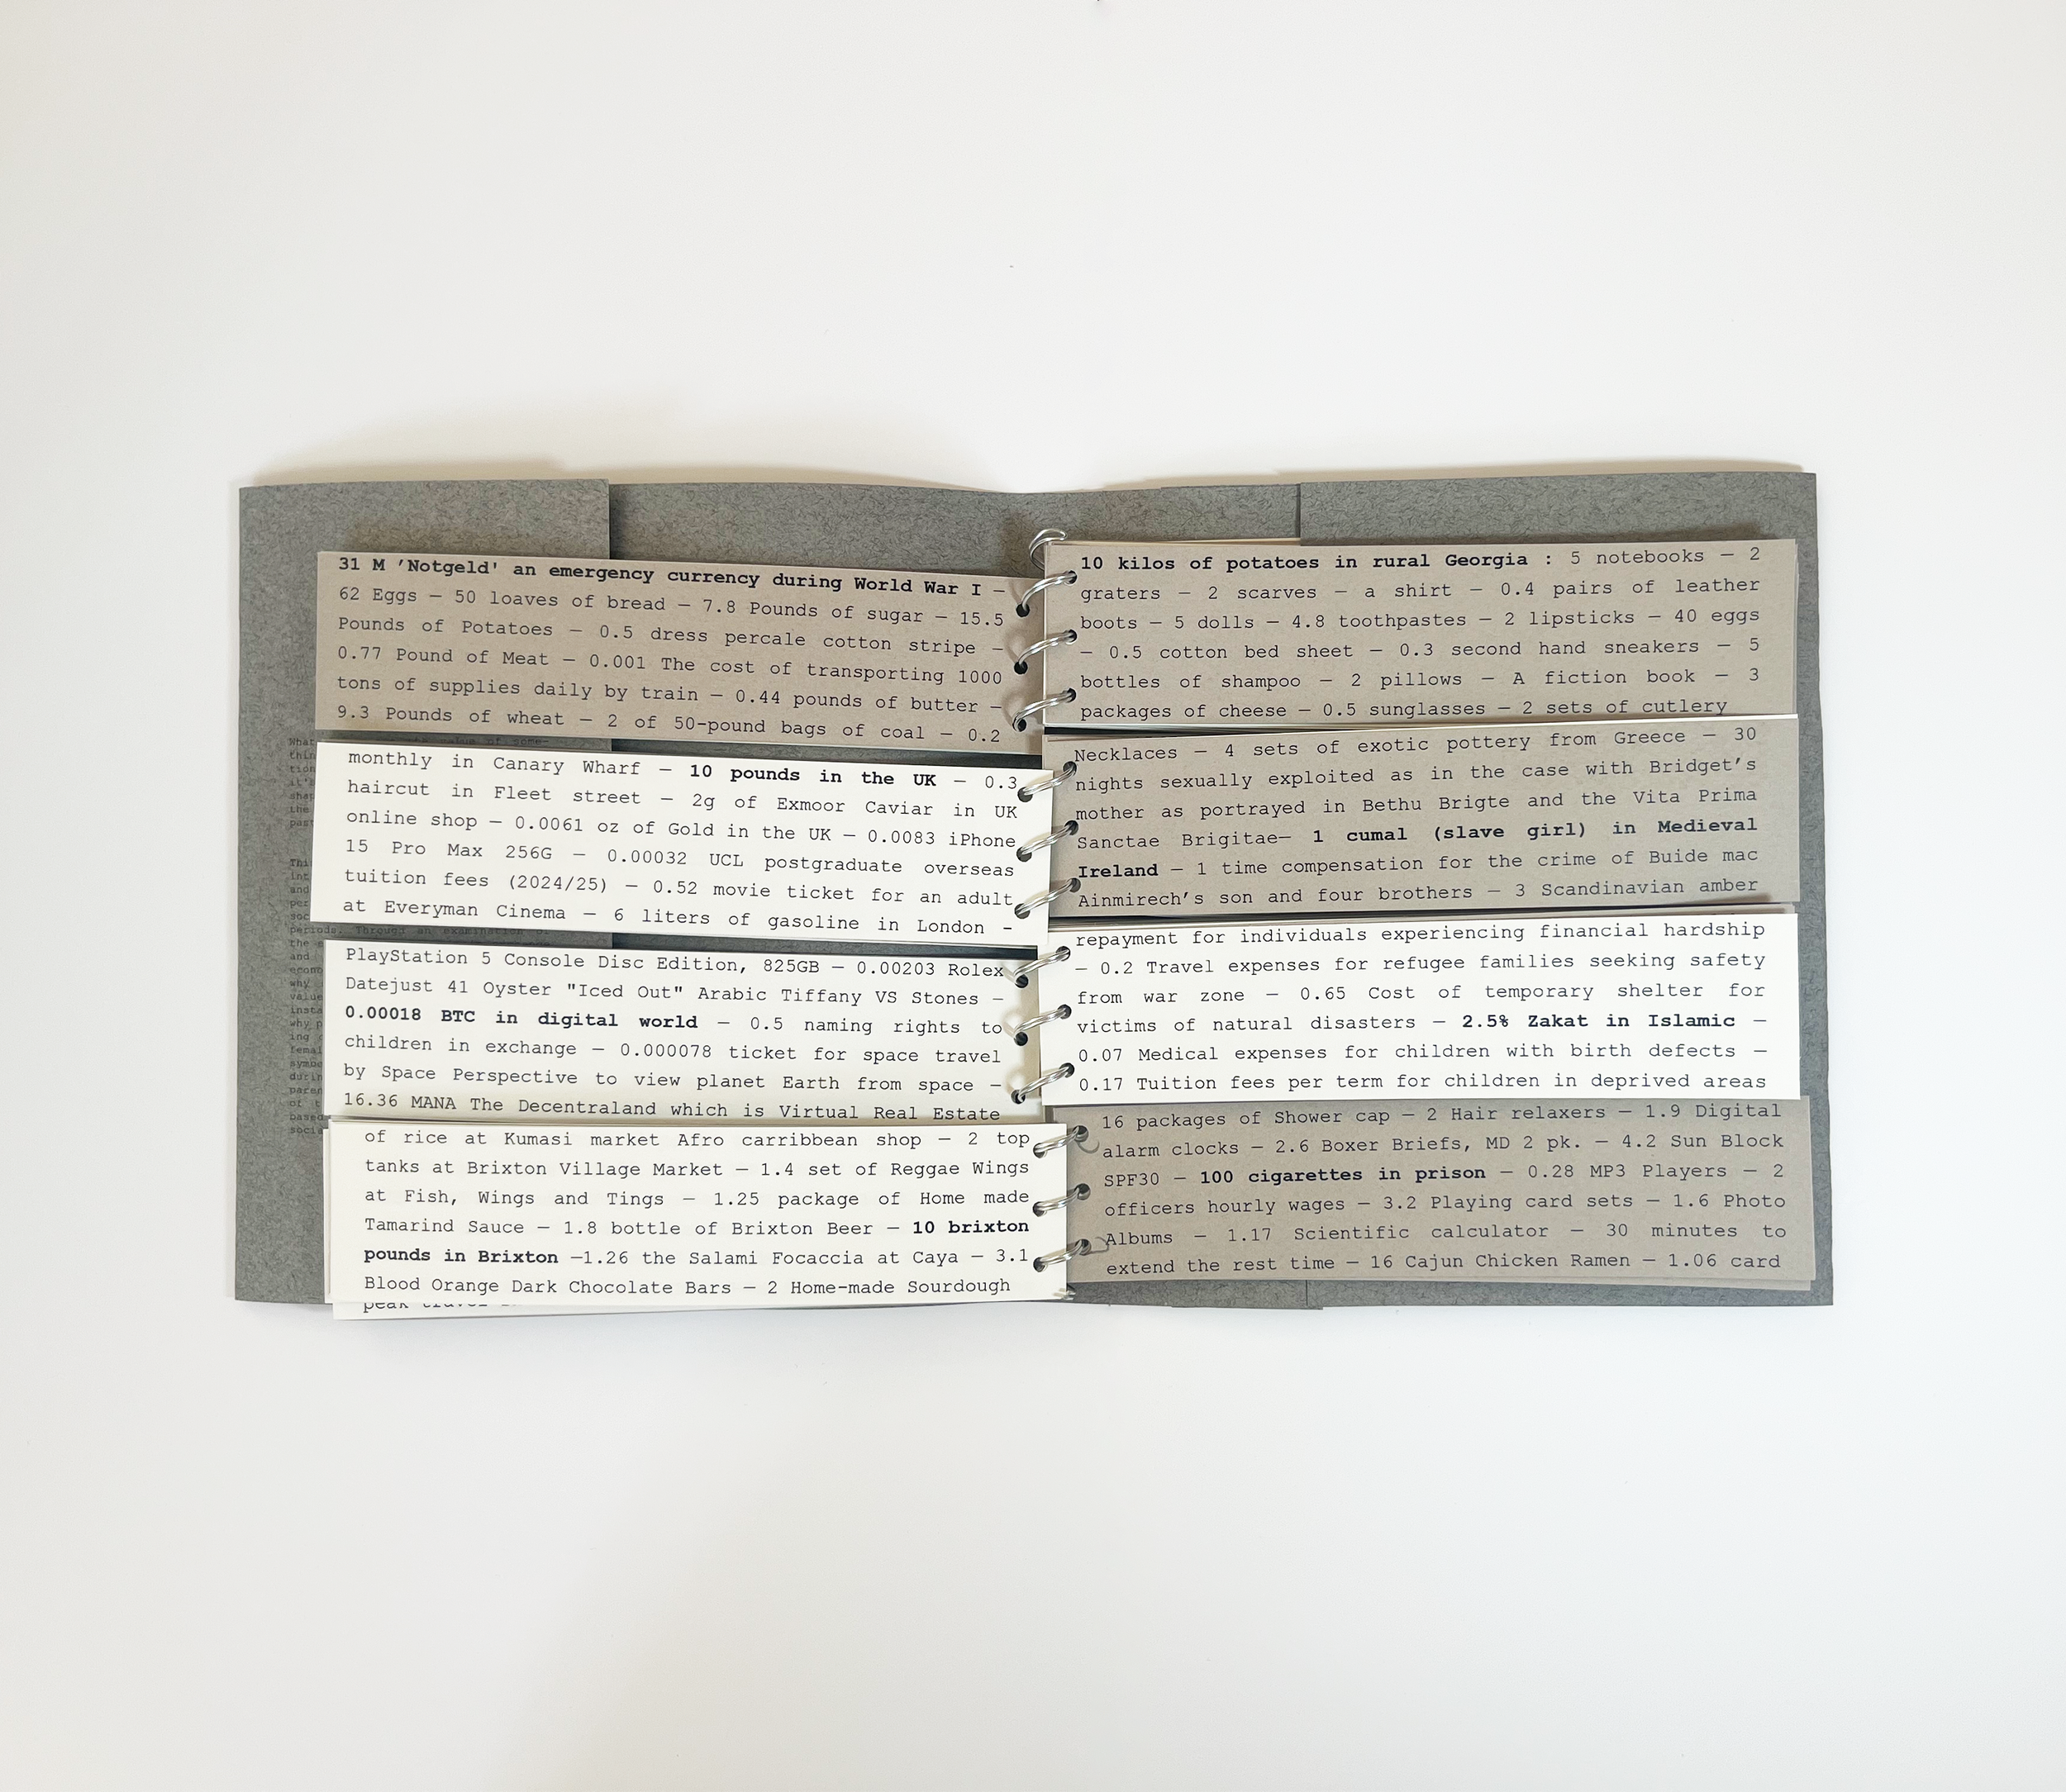 31 M ’Notgeld' an emergency currency during World War I —
62 Eggs — 50 loaves of bread — 7.8 Pounds of sugar — 15.5
Pounds of Potatoes — 0.5 dress percale cotton stripe —
0.77 Pound of Meat — 0.001 The cost of transporting 1000
tons of supplies daily by train — 0.44 pounds of butter —
9.3 Pounds of wheat — 2 of 50-pound bags of coal — 0.2
monthly in Canary Wharf — 10 pounds in the UK — 0.3
haircut in Fleet street — 2g of Exmoor Caviar in UK
online shop — 0.0061 oz of Gold in the UK — 0.0083 iPhone
15 Pro Max 256G — 0.00032 UCL postgraduate overseas
tuition fees (2024/25) — 0.52 movie ticket for an adult
at Everyman Cinema — 6 liters of gasoline in London -
PlayStation 5 Console Disc Edition, 825GB — 0.00203 Rolex
Datejust 41 Oyster "Iced Out" Arabic Tiffany VS Stones —
0.00018 BTC in digital world — 0.5 naming rights to
children in exchange — 0.000078 ticket for space travel
by Space Perspective to view planet Earth from space —
16.36 MANA The Decentraland which is Virtual Real Estate
of rice at Kumasi market Afro carribbean shop — 2 top
tanks at Brixton Village Market — 1.4 set of Reggae Wings
at Fish, Wings and Tings — 1.25 package of Home made
Tamarind Sauce — 1.8 bottle of Brixton Beer — 10 brixton
pounds in Brixton —1.26 the Salami Focaccia at Caya — 3.1
Blood Orange Dark Chocolate Bars — 2 Home-made Sourdough
peak travel
10 kilos of potatoes in rural Georgia : 5 notebooks — 2
graters — 2 scarves — a shirt — 0.4 pairs of leather
boots — 5 dolls — 4.8 toothpastes — 2 lipsticks — 40 eggs
— 0.5 cotton bed sheet — 0.3 second hand sneakers — 5
bottles of shampoo — 2 pillows — A fiction book — 3
packages of cheese — 0.5 sunglasses — 2 sets of cutlery
Necklaces — 4 sets of exotic pottery from Greece — 30
nights sexually exploited as in the case with Bridget’s
mother as portrayed in Bethu Brigte and the Vita Prima
Sanctae Brigitae— 1 cumal (slave girl) in Medieval
Ireland — 1 time compensation for the crime of Buide mac
Ainmirech’s son and four brothers — 3 Scandinavian amber
repayment for individuals experiencing financial hardship
— 0.2 Travel expenses for refugee families seeking safety
from war zone — 0.65 Cost of temporary shelter for
victims of natural disasters — 2.5% Zakat in Islamic —
0.07 Medical expenses for children with birth defects —
0.17 Tuition fees per term for children in deprived areas
16 packages of Shower cap — 2 Hair relaxers — 1.9 Digital
alarm clocks — 2.6 Boxer Briefs, MD 2 pk. — 4.2 Sun Block
SPF30 — 100 cigarettes in prison — 0.28 MP3 Players — 2
officers hourly wages — 3.2 Playing card sets — 1.6 Photo
Albums — 1.17 Scientific calculator — 30 minutes to
extend the rest time — 16 Cajun Chicken Ramen — 1.06 card